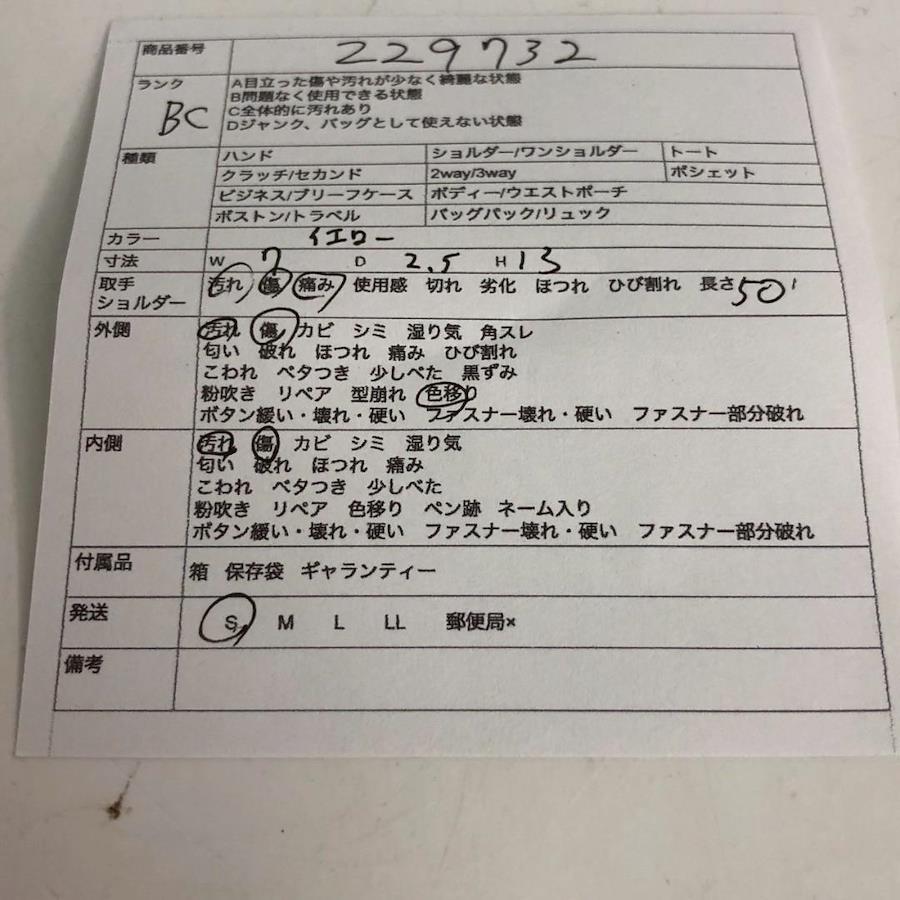 商品番号 229732
ランク BC A目立った傷や汚れが少なく綺麗な状態
B問題なく使用できる状態
C全体的に汚れあり
Dジャンク、バッグとして使えない状態
種類 ハンド ショルダー/ワンショルダー トート
クラッチ/セカンド 2way/3way ポシェット
ビジネス/ブリーフケース ボディー/ウエストポーチ
ボストン/トラベル バッグパック/リュック
カラー イエロー
寸法 W 7 D 2.5 H 13
取手 汚れ 傷 痛み 使用感 切れ 劣化 ほつれ ひび割れ 長さ50
ショルダー
外側 汚れ 傷 カビ シミ 湿り気 角スレ
匂い 破れ ほつれ 痛み ひび割れ
こわれ ベタつき 少しべた 黒ずみ
粉吹き リペア 型崩れ 色移り
ボタン緩い・壊れ・硬い ファスナー壊れ・硬い ファスナー部分破れ
内側 汚れ 傷 カビ シミ 湿り気
匂い 破れ ほつれ 痛み
こわれ ベタつき 少しべた
粉吹き リペア 色移り ペン跡 ネーム入り
ボタン緩い・壊れ・硬い ファスナー壊れ・硬い ファスナー部分破れ
付属品 箱 保存袋 ギャランティー
発送 S M L LL 郵便局×
備考